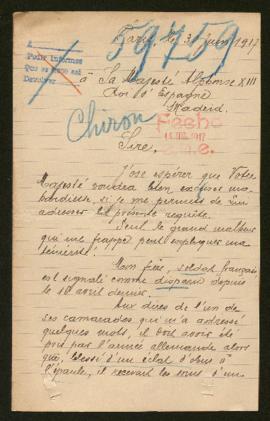 Paris, le 3 juin 1917
59759
A
Para informes
Que se pide así
Devolver
à Sa Majesté Alfonse XIII
Roi d'Espagne
Madrid.
Chiron
Fecho
1917
Sire,
J'ose espérer que Votre
Majesté voudra bien excuser ma
hardiesse, si je me permets de lui
adresser la présente requête.
Seul le grand malheur
qui me frappe peut expliquer ma
témérité!
Mon frère, soldat français
est signalé comme disparu depuis
le 16 avril dernier.
Aux dires de l'un de
ses camarades qui m'a adressé
quelques mots, il doit avoir été
pris par l'armée allemande alors
que, blessé d'un éclat d'obus à
l'épaule, il recevait les soins d'un